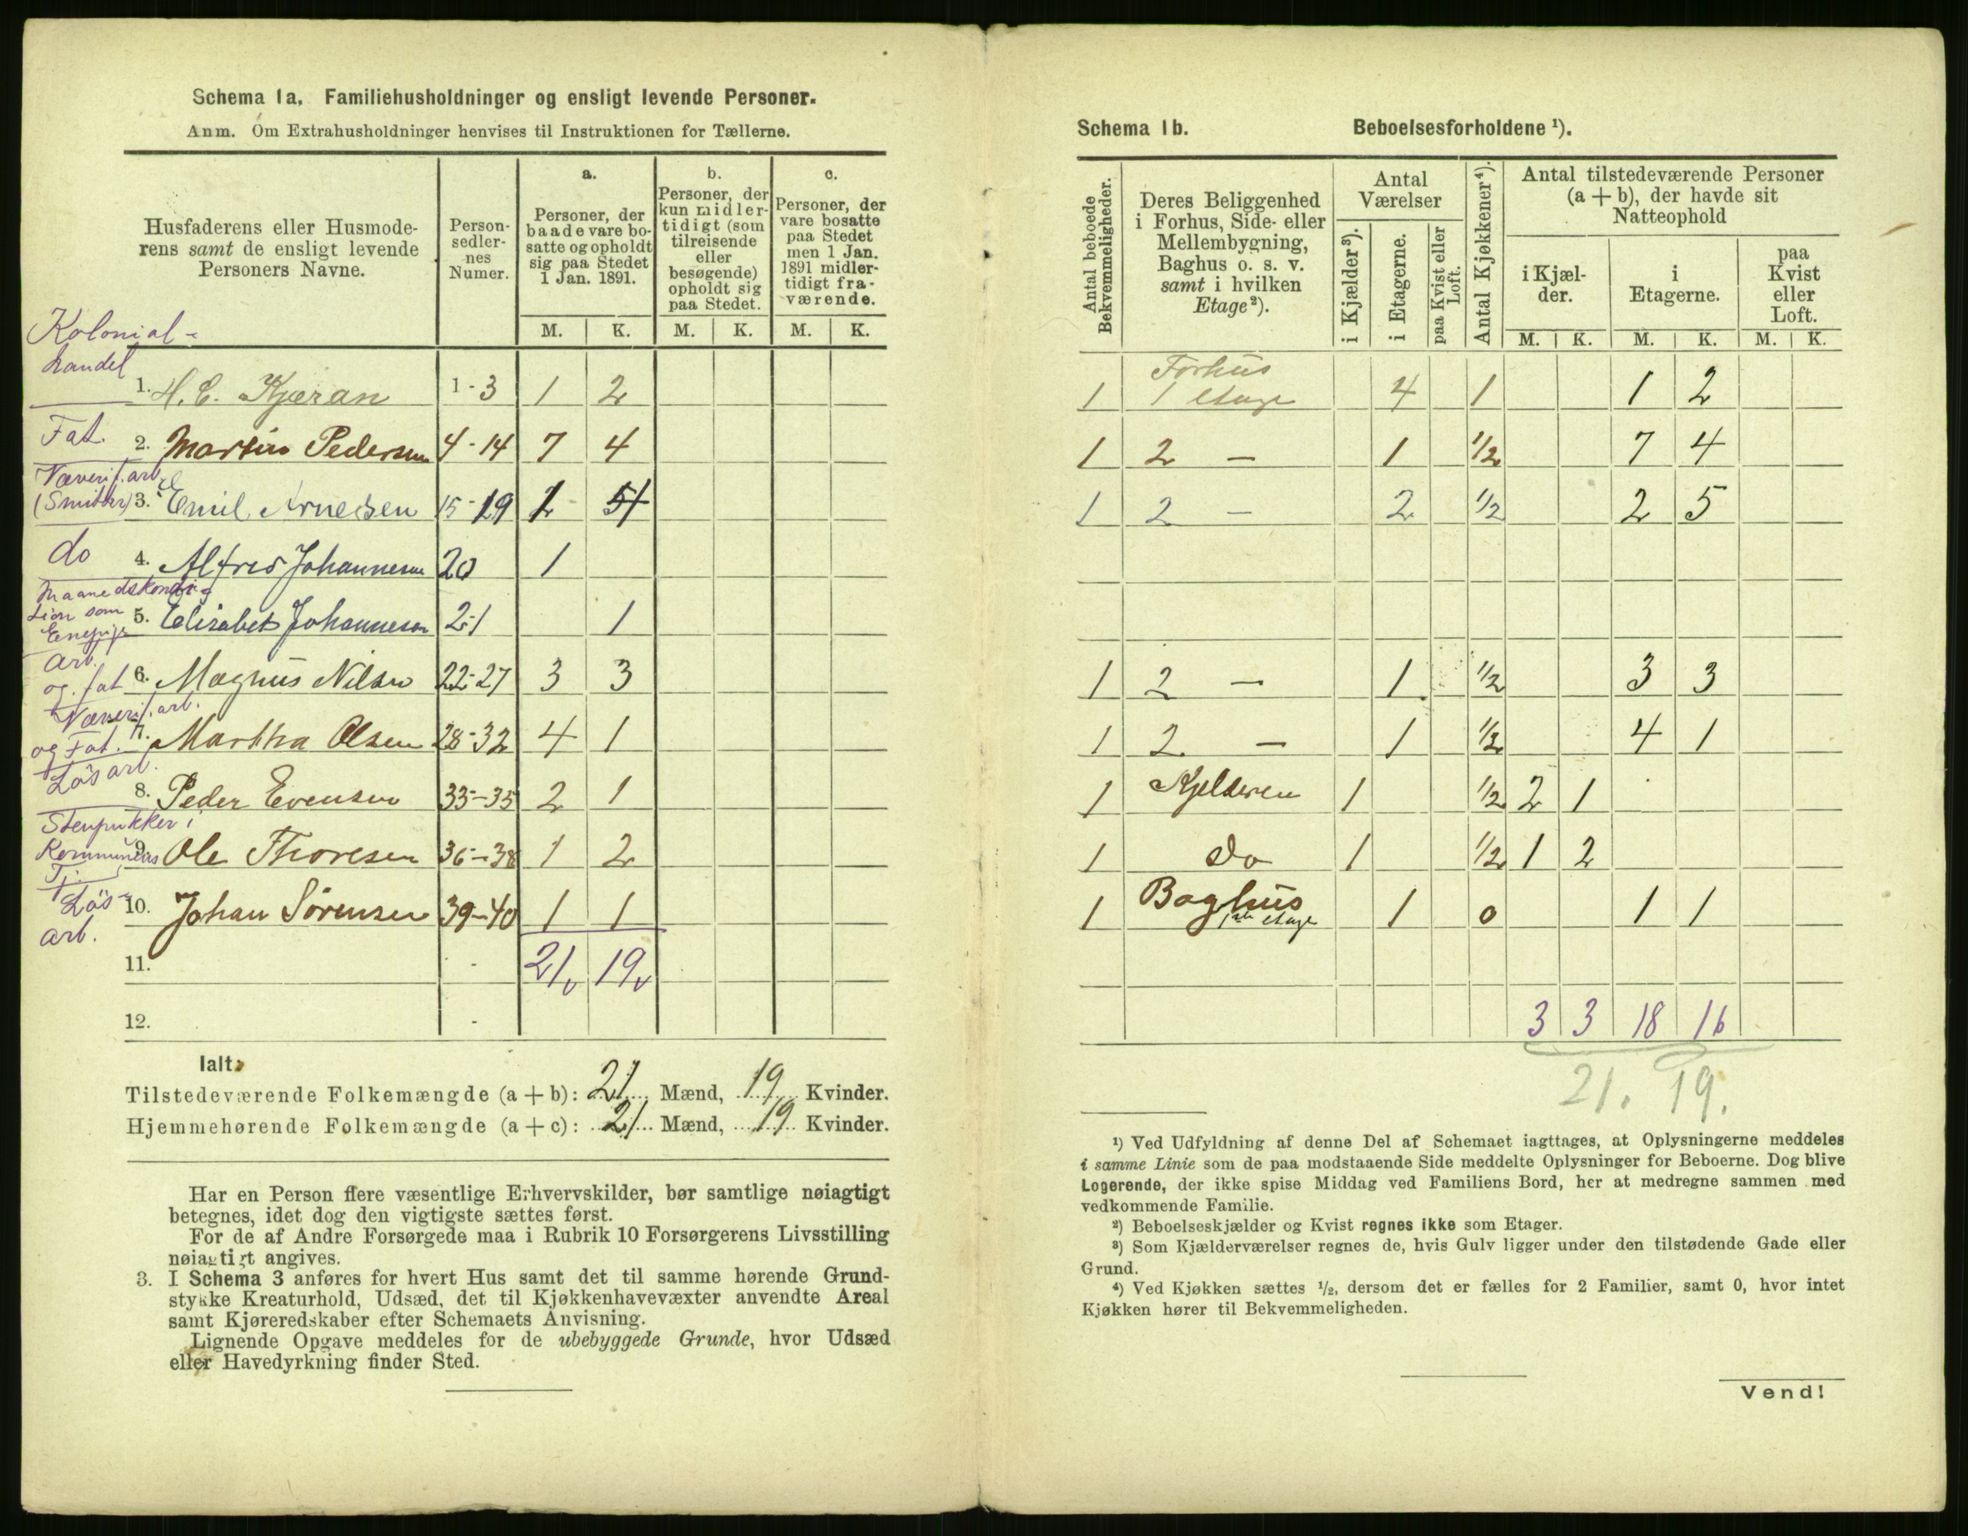 Schema 1a. Familiehusholdninger og ensligt levende Personer.
Anm. Om Extrahusholdninger henvises til Instruktionen for Tællerne.
Husfaderens eller Husmode-
rens samt de ensligt levende
Personers Navne.
Person-
sedler-
nes
Numer.
a.
Personer, der
baade vare bo-
satte og opholdt
sig paa Stedet
1 Jan. 1891.
b.
Personer, der
kun midler-
tidigt (som
tilreisende
eller
besøgende)
opholdt sig
paa Stedet.
c.
Personer, der
vare bosatte
paa Stedet
men 1 Jan.
1891 midler-
tidigt fra-
værende.
M. K. M. K. M. K.
Kolonial-
handel
1. H. C. Kjæran 1-3 1 2
Fat.
2. Martin Pedersen 4-14 7 4
Næverif. arb.
(Smitter) 3. Emil Arnesen 15-19 1 5
do 4. Alfred Johannesen 20 1
Maanedskondi-
tion som
Enepige
5. Elisabet Johannesen 21 1
Arb.
og. fat 6. Magnus Nilsen 22-27 3 3
Næverif. arb.
og Fat. 7. Martha Olsen 28-32 4 1
Løsarb.
8. Peder Evensen 33-35 2 1
Stenpukker i
Kommunens
Tj. 9. Ole Thoresen 36-38 1 2
Løs-
arb.
10. Johan Sørensen 39-40 1 1
11. - 21 19
12. -
Ialt:
Tilstedeværende Folkemængde (a + b): 21 Mænd, 19 Kvinder.
Hjemmehørende Folkemængde (a + c): 21 Mænd, 19 Kvinder.
Har en Person flere væsentlige Erhvervskilder, bør samtlige nøiagtigt
betegnes, idet dog den vigtigste sættes først.
For de af Andre Forsørgede maa i Rubrik 10 Forsørgerens Livsstilling
nøiagtigt angives.
3. I Schema 3 anføres for hvert Hus samt det til samme hørende Grund-
stykke Kreaturhold, Udsæd, det til Kjøkkenhavevæxter anvendte Areal
samt Kjøreredskaber efter Schemaets Anvisning.
Lignende Opgave meddeles for de ubebyggede Grunde, hvor Udsæd
eller Havedyrkning finder Sted.
Schema 1b. Beboelsesforholdene ¹).
Antal beboede
Bekvemmeligheder.
Deres Beliggenhed
i Forhus, Side- eller
Mellembygning,
Baghus o. s. v.
samt i hvilken
Etage²).
Antal
Værelser
i Kjælder³).
i Etagerne.
paa Kvist eller
Loft.
Antal Kjøkkener⁴).
Antal tilstedeværende Personer
(a + b), der havde sit
Natteophold
i Kjæl-
der.
i
Etagerne.
paa
Kvist
eller
Loft.
M. K. M. K. M. K.
1 Forhus
1 Etage 4 1 1 2
1 2 — 1 1/2 7 4
1 2 — 2 1/2 2 5
1 2 — 1 1/2 3 3
1 2 — 1 1/2 4 1
1 Kjelderen 1 1/2 2 1
1 do 1 1/2 1 2
1 Baghus
1ste etage 1 0 1 1
3 3 18 16
21. 19.
¹) Ved Udfyldning af denne Del af Schemaet iagttages, at Oplysningerne meddeles
i samme Linie som de paa modstaaende Side meddelte Oplysninger for Beboerne. Dog blive
Logerende, der ikke spise Middag ved Familiens Bord, her at medregne sammen med
vedkommende Familie.
²) Beboelseskjælder og Kvist regnes ikke som Etager.
³) Som Kjælderværelser regnes de, hvis Gulv ligger under den tilstødende Gade eller
Grund.
⁴) Ved Kjøkken sættes ½, dersom det er fælles for 2 Familier, samt 0, hvor intet
Kjøkken hører til Bekvemmeligheden.
Vend!